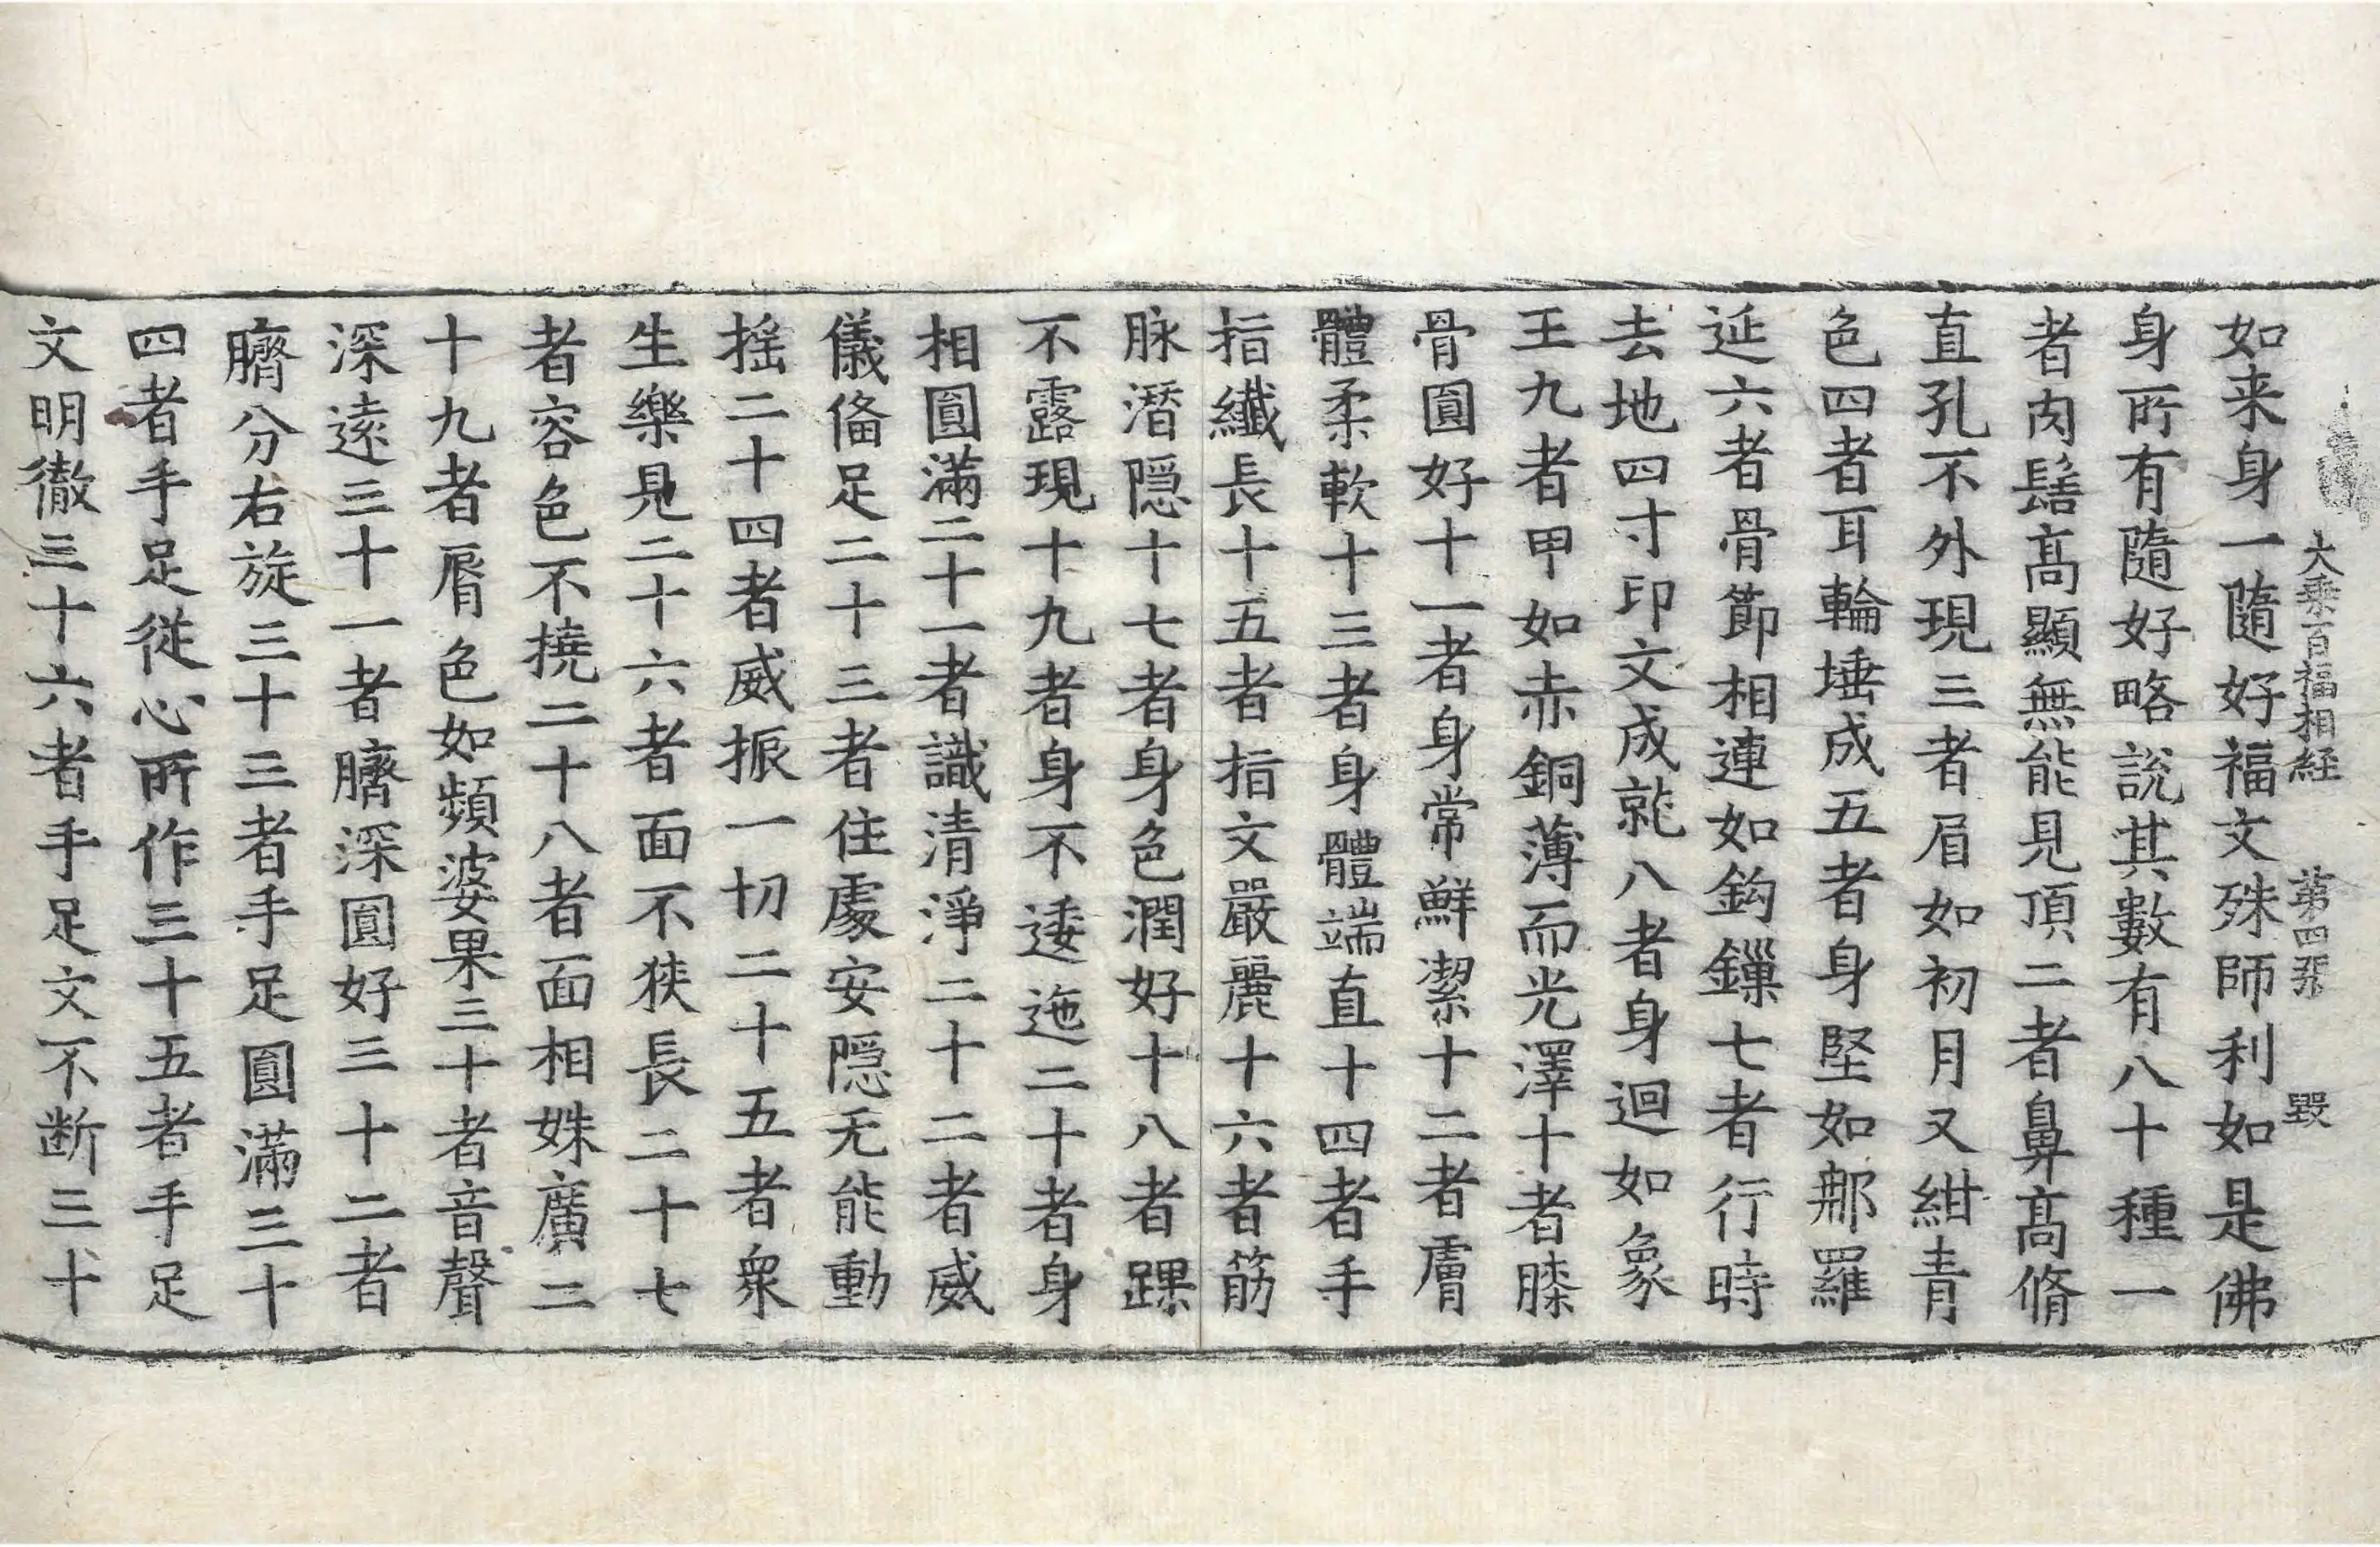 大乘百福相経 第四張 毀
如来身一隨好福文殊師利如是佛
身所有隨好略說其數有八十種一
者肉髻髙顯無能見頂二者鼻髙脩
直孔不外現三者眉如初月又紺青
色四者耳輪埵成五者身堅如那羅
延六者骨節相連如鈎鏁七者行時
去地四寸印文成就八者身迴如象
王九者甲如赤銅薄而光澤十者膝
骨圓好十一者身常鮮潔十二者膚
體柔軟十三者身體端直十四者手
指纖長十五者指文嚴麗十六者筋
脉潛隠十七者身色潤好十八者踝
不露現十九者身不逶迤二十者身
相圓滿二十一者識清淨二十二者威
儀俻足二十三者住處安隠无能動
揺二十四者威振一切二十五者衆
生樂見二十六者面不狹長二十七
者容色不撓二十八者面相姝廣二
十九者脣色如頻婆果三十者音聲
深逺三十一者臍深圓好三十二者
臍分右旋三十三者手足圓滿三十
四者手足従心所作三十五者手足
文明徹三十六者手足文不断三十